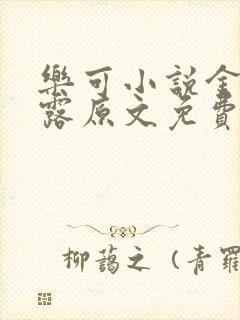 樂可小說金
露原文免費
柳藹之（青羅